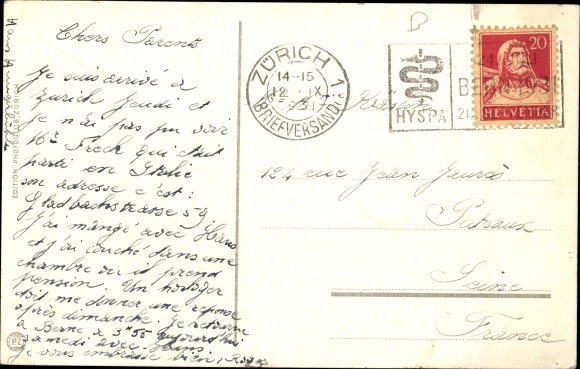 Chers Parents
Je suis arrivé à
Zurich Jeudi et
je n'ai pas pu voir
Mr Frech qui était
parti en Italie
son adresse c'est :
Gladbachstrasse 59
J'ai mangé avec Hans
et j'ai couché dans une
chambre où il prend
pension. Un horloger
doit me donner une réponse
après dimanche. Je retourne
à Berne à 3h55 aujourd'hui
samedi avec Hans
Je vous embrasse bien, Roger
Hans
EDITION PHOTOGLOB ZÜRICH
PZ
ZÜRICH 1
14-15
12. IX.
31
(BRIEFVERSAND)
HYSPA
BERN 1931
20
HELVETIA
124 rue Jean Jaurès
Puteaux
Seine
France